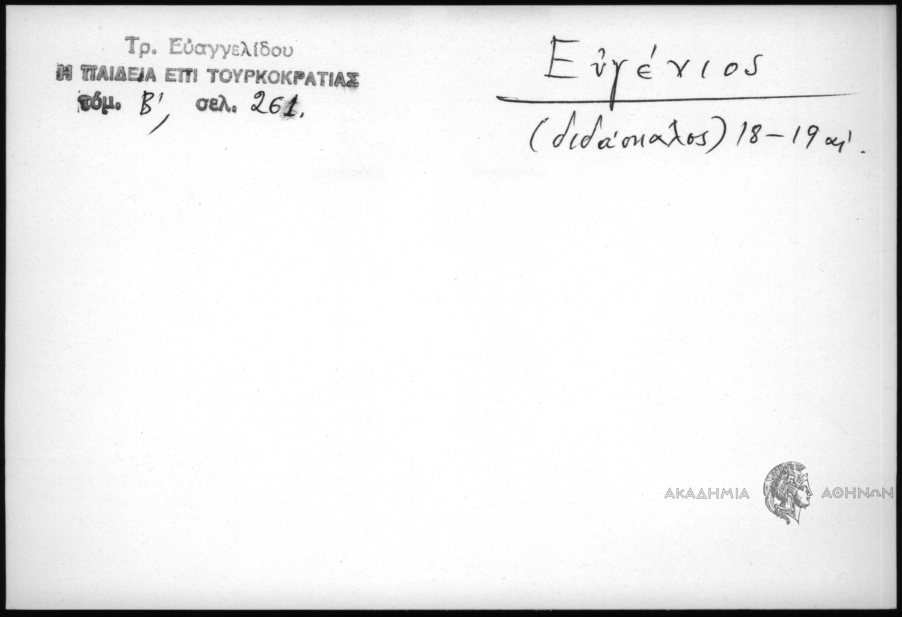 Τρ. Εὐαγγελίδου
Η ΠΑΙΔΕΙΑ ΕΠΙ ΤΟΥΡΚΟΚΡΑΤΙΑΣ
τόμ. Β', σελ. 261.
Εὐγένιος
(διδάσκαλος) 18-19 αἰ.
ΑΚΑΔΗΜΙΑ ΑΘΗΝΩΝ